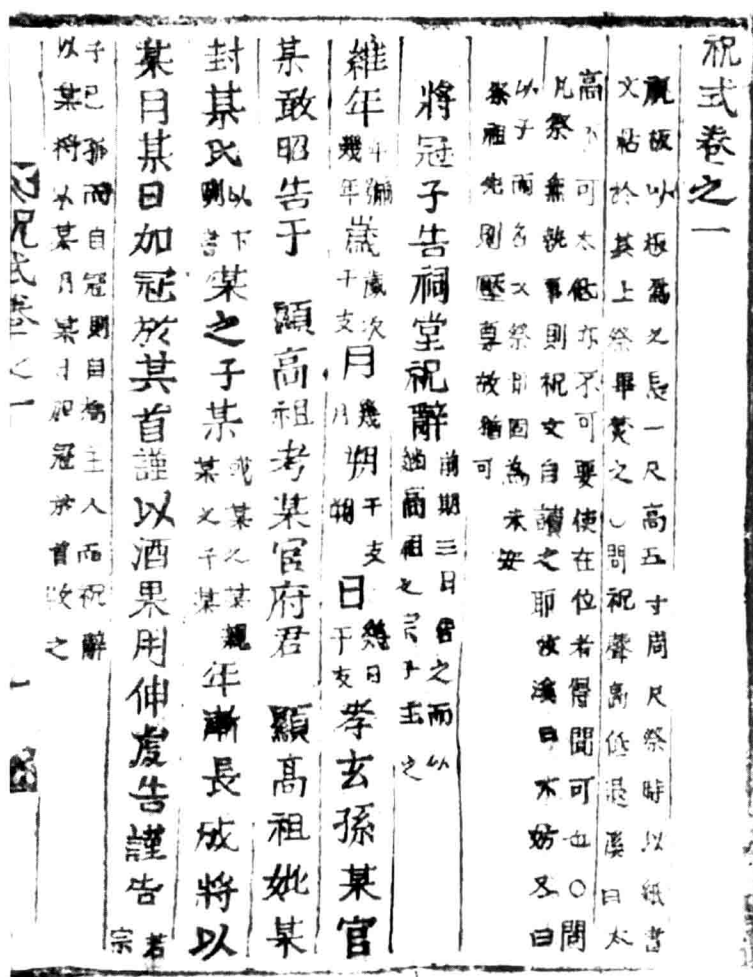 祝式卷之一
祝板以板爲之長一尺高五寸周尺祭時以紙書
文帖於其上祭畢焚之○問祝聲高低退溪曰太
高不可太低亦不可要使在位者得聞可也○問
凡祭無執事則祝文自讀之耶攷溪曰不妨又曰
以子而名父祭田固為未安
祭祖先則壓尊故猶可
將冠子告祠堂祝辭
前期三日告之而以
繼高祖之宗子主之
維年
年號
幾年
歲
歲次
干支
月
幾
月
朔
干支
朔
日
幾日
干支
孝玄孫某官
某敢昭告于 顯高祖考某官府君 顯高祖妣某
封某氏
以下
列書
某之子某
或某之某親
某之子某
年漸長成將以
某月某日加冠於其首謹以酒果用伸虔告謹告
若
宗
子已孤而自冠則自爲主人而祝辭
以某將以某月某日加冠於首改之
祝式卷之一
一